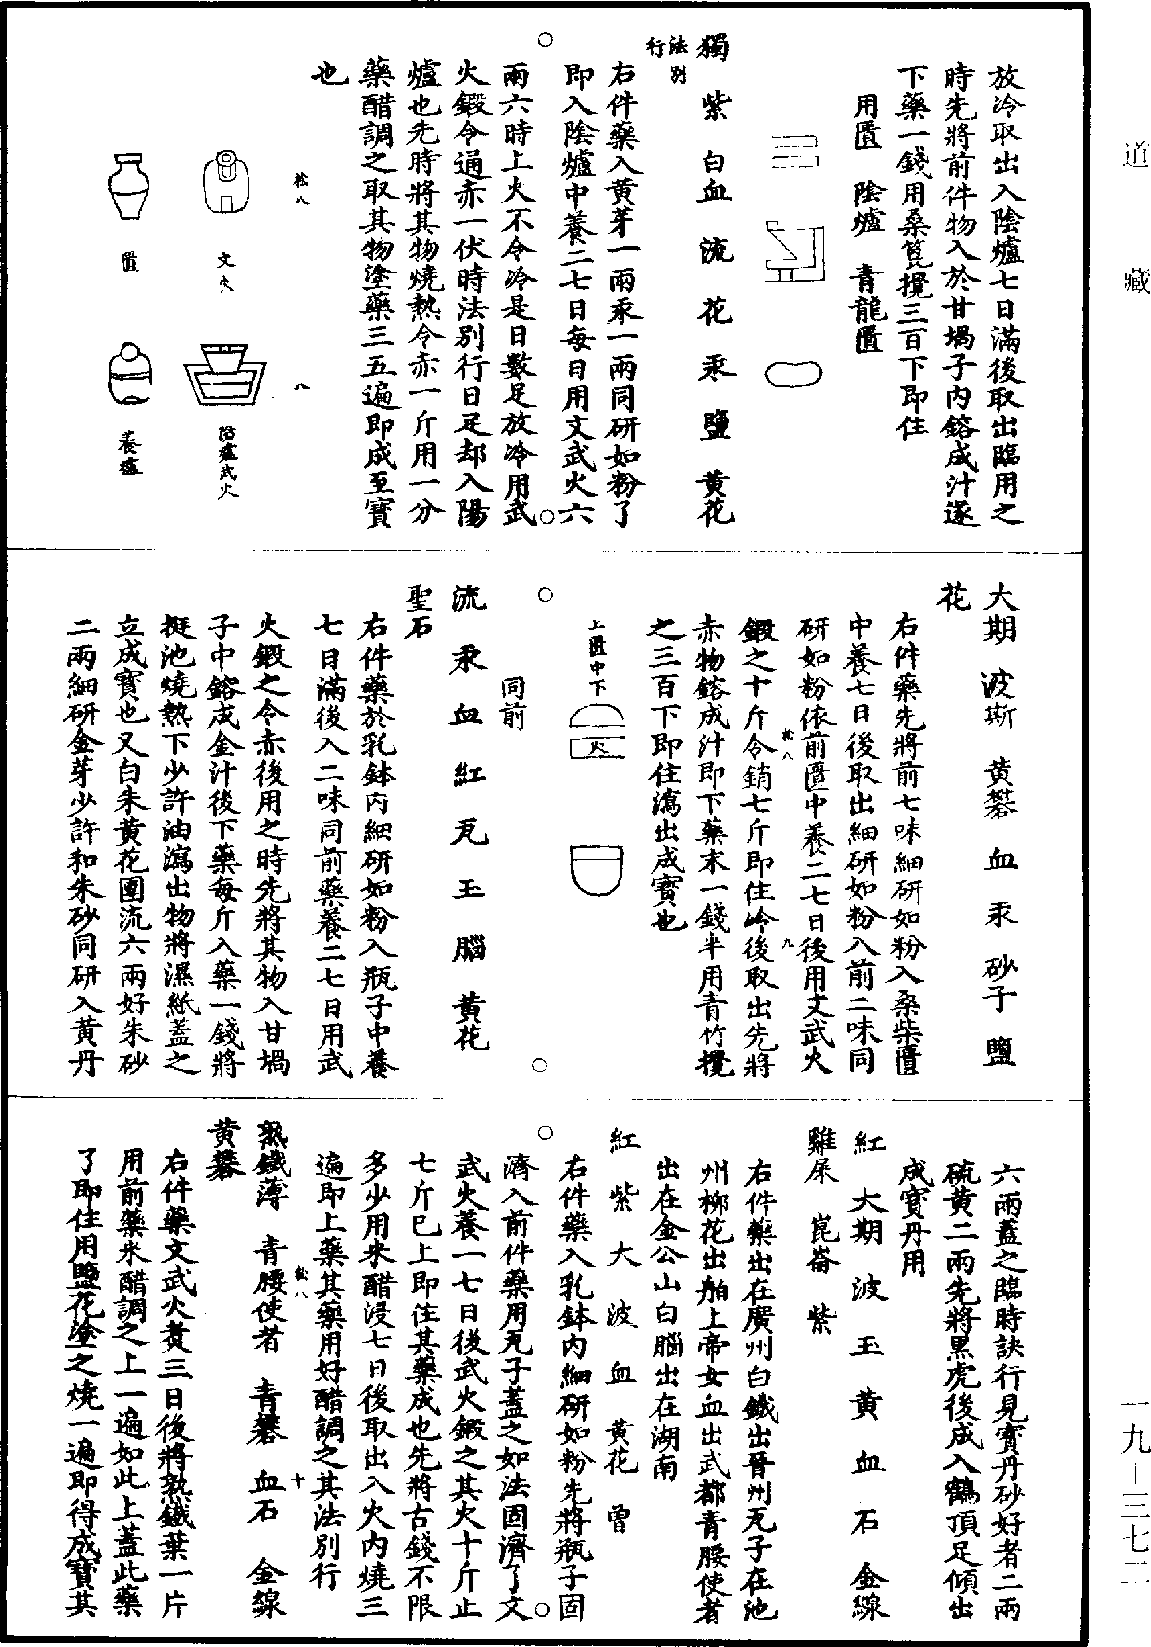 道藏
放冷取出入陰爐七日滿後取出臨用之
時先將前件物入於甘堝子內鎔成汁遂
下藥一錢用桑箆攪三百下即住
用匱　陰爐　青龍匱
獨　紫　白血　流　花　汞　鹽　黃花
法別
行
右件藥入黃芽一兩汞一兩同研如粉了
即入陰爐中養二七日每日用文武火六
兩六時上火不令冷是日數足放冷用武
火鍛令通赤一伏時法別行日足却入陽
爐也先時將其物燒熱令赤一斤用一分
藥醋調之取其物塗藥三五遍即成至寶
也
松八
八
文火
陰爐武火
匱
養爐
大期　波斯　黃礬　血　汞　砂子　鹽
花
右件藥先將前七味細研如粉入桑柴匱
中養七日後取出細研如粉入前二味同
研如粉依前匱中養二七日後用文武火
松八
九
鍛之十斤令銷七斤即住冷後取出先將
赤物鎔成汁即下藥末一錢半用青竹攪
之三百下即住瀉出成寶也
上匱中下
火
同前
流　汞　血　紅　瓦　玉　腦　黃花
聖石
右件藥於乳鉢內細研如粉入瓶子中養
七日滿後入二味同前藥養二七日用武
火鍛之令赤後用之時先將其物入甘堝
子中鎔成金汁後下藥每斤入藥一錢將
挺池燒熱下少許油瀉出物將濕紙蓋之
立成寶也又白朱黃花團流六兩好朱砂
二兩細研金芽少許和朱砂同研入黃丹
六兩蓋之臨時訣行見寶丹砂好者二兩
硫黃二兩先將黑虎後成入鶴頂足傾出
成寶丹用
紅　大期　波　玉　黃　血　石　金線
雞屎　崑崙　紫
右件藥出在廣州白鐵出晉州瓦子在池
州柳花出舶上帝女血出武都青腰使者
出在金公山白腦出在湖南
紅　紫　大　波　血　黃花　曾
右件藥入乳鉢內細研如粉先將瓶子固
濟入前件藥用瓦子蓋之如法固濟了文
武火養一七日後武火鍛之其火十斤止
七斤巳上即住其藥成也先將古錢不限
多少用米醋浸七日後取出入火內燒三
遍即上藥其藥用好醋調之其法別行
松八
十
熟鐵薄　青腰使者　青礬　血石　金線
黃礬
右件藥文武火煮三日後將熟鐵葉一片
用前藥米醋調之上一遍如此上蓋此藥
了即住用鹽花塗之燒一遍即得成寶其
一九—三七二